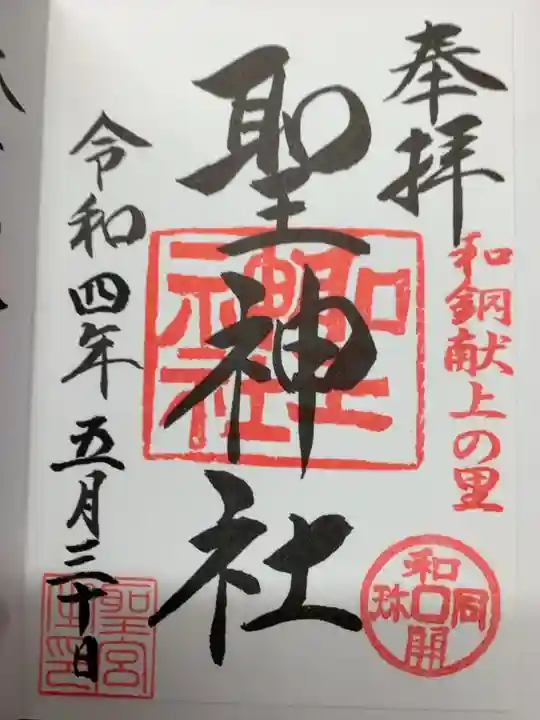 奉拝
和銅献上の里
和同開珎
聖神社
聖神社
令和四年五月三十日
聖宮